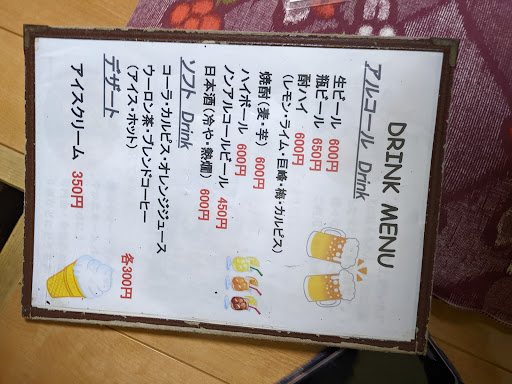 DRINK MENU
アルコール Drink
生ビール 600円
瓶ビール 650円
酎ハイ 600円
(レモン・ライム・巨峰・梅・カルピス)
焼酎(麦・芋) 600円
ハイボール 600円
ノンアルコールビール 450円
日本酒(冷や・熱燗) 600円
ソフト Drink
コーラ・カルピス・オレンジジュース
ウーロン茶・ブレンドコーヒー
(アイス・ホット)
各300円
デザート
アイスクリーム 350円